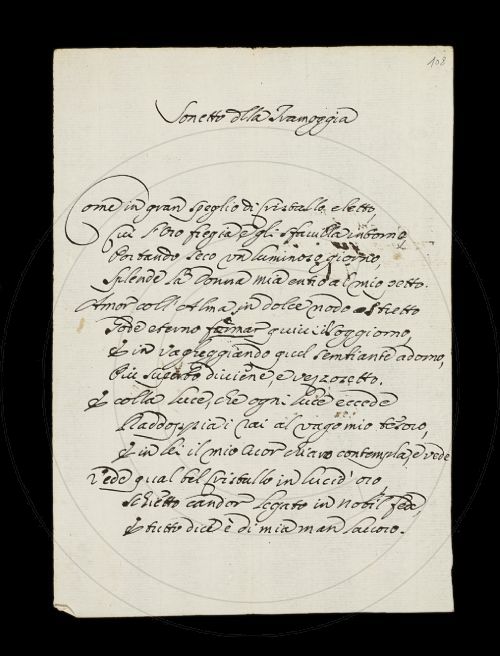 108
Sonetto d'lla Tramoggia
Come in gran speglio di Cristallo eletto,
sfavilla intorno
Portando seco un luminoso giorno,
Splende la Donna mia entro al mio petto.
Amor coll'Alma in dolce nodo stretto
Gode eterno formar quivi il soggiorno,
E in vagheggiando quel sembiante adorno,
Più superbo diviene, e vezzosetto.
E colla luce, che ogni luce eccede
Raddoppia i rai al vago mio tesoro,
E in lei il mio cor contempla, e vede
Vede qual bel Cristallo in lucid' oro,
Schietto candor legato in nobil fede,
E tutto dice è di mia man lavoro.